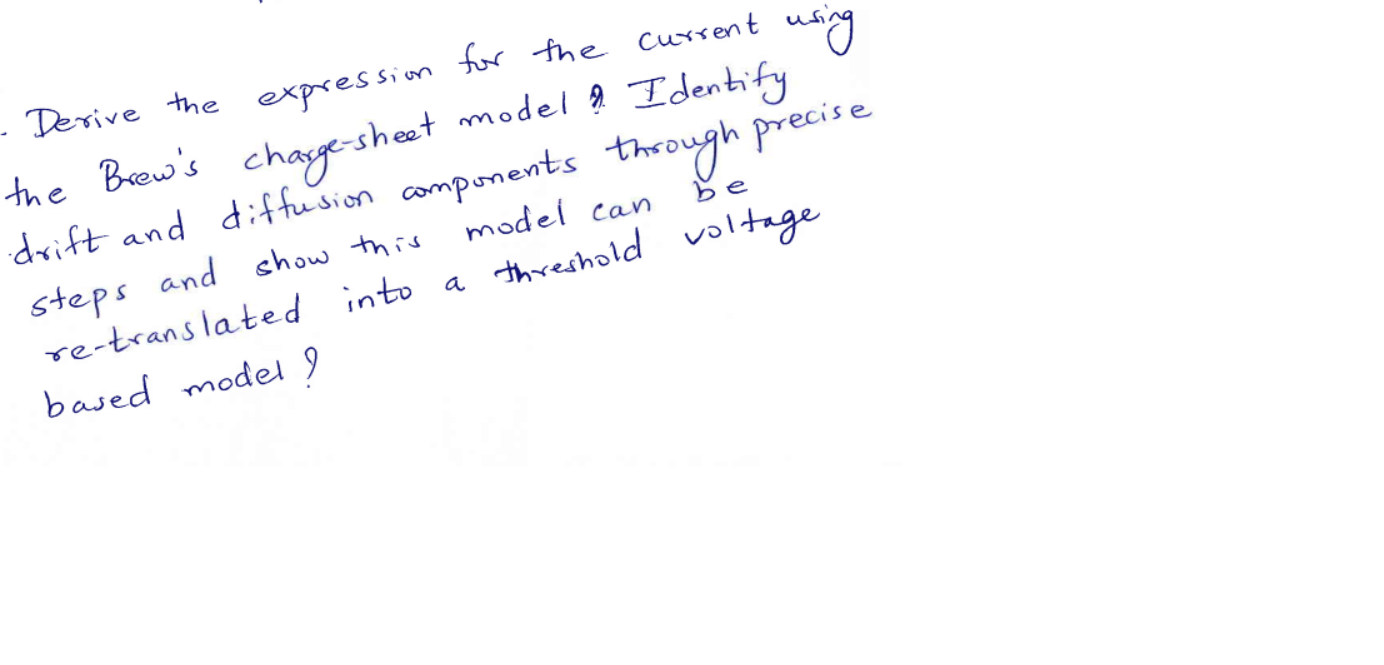 . Derive the expression for the current using
the Brew's charge-sheet model ? Identify
drift and diffusion components through precise
steps and show this model can be
re-translated into a threshold voltage
based model ?